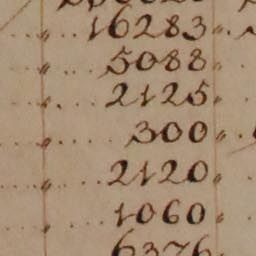 16283
5088
2125
300
2120
1060
6376